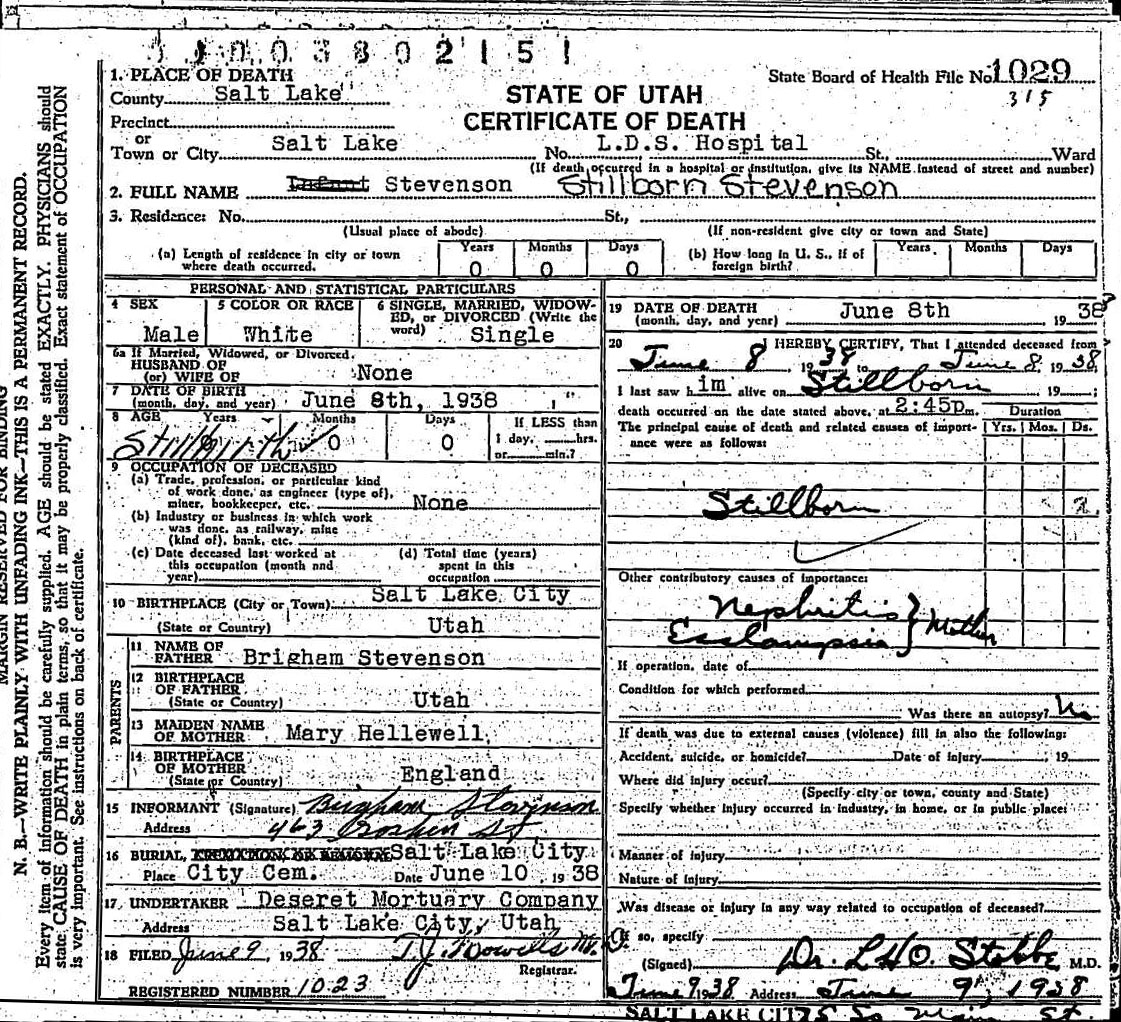 1 1 0 0 3 8 0 2 1 5 1
MARGIN RESERVED FOR BINDING
N. B.—WRITE PLAINLY WITH UNFADING INK—THIS IS A PERMANENT RECORD.
Every item of information should be carefully supplied. AGE should be stated EXACTLY. PHYSICIANS should
state CAUSE OF DEATH in plain terms, so that it may be properly classified. Exact statement of OCCUPATION
is very important. See instructions on back of certificate.
1. PLACE OF DEATH
State Board of Health File No. 1029
315
County Salt Lake
STATE OF UTAH
CERTIFICATE OF DEATH
Precinct
or
Town or City Salt Lake No. L.D.S. Hospital St., Ward
(If death occurred in a hospital or institution, give its NAME instead of street and number)
2. FULL NAME Infant Stevenson Stillborn Stevenson
3. Residence: No. St.,
(Usual place of abode) (If non-resident give city or town and State)
(a) Length of residence in city or town where death occurred. Years 0 Months 0 Days 0
(b) How long in U. S., if of foreign birth? Years Months Days
PERSONAL AND STATISTICAL PARTICULARS
4 SEX Male
5 COLOR OR RACE White
6 SINGLE, MARRIED, WIDOWED, or DIVORCED (Write the word) Single
6a If Married, Widowed, or Divorced,
HUSBAND OF
(or) WIFE OF None
7 DATE OF BIRTH
(month, day, and year) June 8th, 1938
8 AGE Years Stillbirth Months 0 Days 0
If LESS than
1 day, hrs.
or min.?
9 OCCUPATION OF DECEASED
(a) Trade, profession, or particular kind
of work done, as engineer (type of),
miner, bookkeeper, etc. None
(b) Industry or business in which work
was done, as railway, mine
(kind of), bank, etc.
(c) Date deceased last worked at
this occupation (month and
year)
(d) Total time (years)
spent in this
occupation
10 BIRTHPLACE (City or Town) Salt Lake City
(State or Country) Utah
PARENTS
11 NAME OF
FATHER Brigham Stevenson
12 BIRTHPLACE
OF FATHER
(State or Country) Utah
13 MAIDEN NAME
OF MOTHER Mary Hellewell
14 BIRTHPLACE
OF MOTHER
(State or Country) England
15 INFORMANT (Signature) Brigham Stevenson
Address 463 Goshen St
16 BURIAL, CREMATION, OR REMOVAL Salt Lake City
Place City Cem. Date June 10, 1938
17 UNDERTAKER Deseret Mortuary Company
Address Salt Lake City, Utah
18 FILED June 9, 1938 T.J. Howells M.D.
Registrar.
REGISTERED NUMBER 1023
19 DATE OF DEATH
(month, day, and year) June 8th 1938
20 I HEREBY CERTIFY, That I attended deceased from
June 8 1938 to June 8, 1938,
I last saw him alive on Stillborn 19 ;
death occurred on the date stated above, at 2:45p m.
Duration
The principal cause of death and related causes of importance were as follows:
Yrs. Mos. Ds.
Stillborn
Other contributory causes of importance:
Nephritis
Ecclampsia } Mother
If operation, date of
Condition for which performed
Was there an autopsy? No
If death was due to external causes (violence) fill in also the following:
Accident, suicide, or homicide? Date of injury ; 19
Where did injury occur?
(Specify city or town, county and State)
Specify whether injury occurred in industry, in home, or in public place:
Manner of injury
Nature of injury
Was disease or injury in any way related to occupation of deceased?
If so, specify
(Signed) Dr. L.H.O. Stobbe M.D.
June 9 1938 Address June 9, 1938
SALT LAKE CITY 75 So Main St.